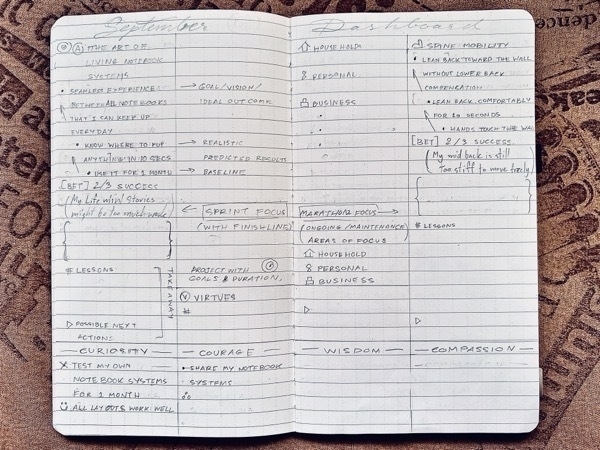 September Dashboard
THE ART OF
LIVING NOTEBOOK
SYSTEMS
• SEAMLESS EXPERIENCE
BETWEEN ALL NOTEBOOKS
THAT I CAN KEEP UP
EVERYDAY
• KNOW WHERE TO PUT
ANYTHING IN 10 SECS
• USE IT FOR 1 MONTH
[BET] 2/3 SUCCESS
(My life mini stories
might be too much work)
# LESSONS
TAKE AWAY
▷ POSSIBLE NEXT
ACTIONS
→ GOAL/VISION/
IDEAL OUTCOME
→ REALISTIC
PREDICTED RESULTS
→ BASELINE
← SPRINT FOCUS
(WITH FINISHLINE)
PROJECT WITH
GOALS & DURATION.
Ⓥ VIRTUES
#
HOUSEHOLD
PERSONAL
BUSINESS
MARATHON FOCUS →
(ONGOING/MAINTENANCE)
AREAS OF FOCUS
HOUSEHOLD
PERSONAL
BUSINESS
▷
SPINE MOBILITY
• LEAN BACK TOWARD THE WALL
WITHOUT LOWER BACK
COMPENSATION
• LEAN BACK COMFORTABLY
FOR 10 SECONDS
• HANDS TOUCH THE WALL
[BET] 2/3 SUCCESS
(My mid back is still
too stiff to move freely)
# LESSONS
▷
— CURIOSITY — — COURAGE — — WISDOM — — COMPASSION —
X TEST MY OWN
NOTEBOOK SYSTEMS
FOR 1 MONTH
ALL LAYOUTS WORK WELL
• SHARE MY NOTEBOOK
SYSTEMS